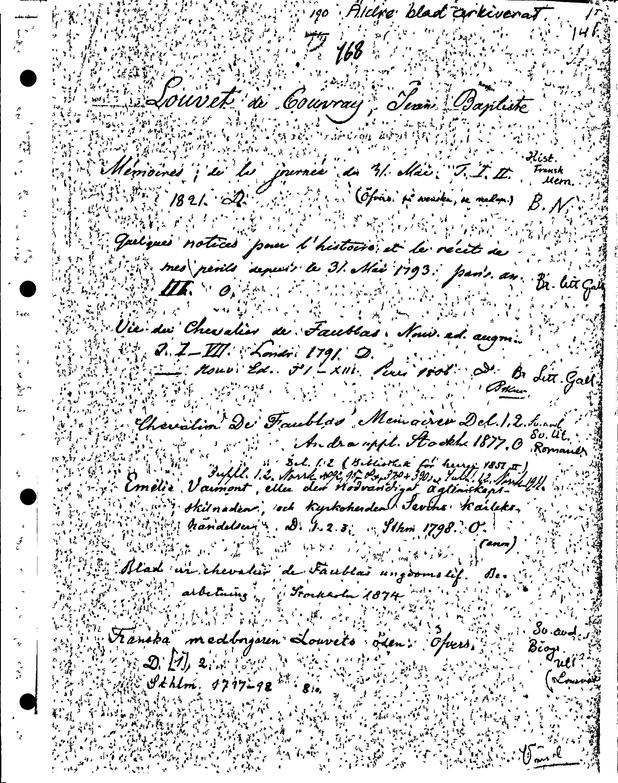 190 Äldre blad arkiverat
168
Louvet de Couvray, Jean Baptiste
Mémoires de la journée du 31. Mai. T. I. II. Hist. Fransk Mem.
1821. D. (Öfvers. på svenska, se nedan.) B. N.
Quelques notices pour l'histoire et le récit de
mes périls depuis le 31. Mai 1793. Paris. an.
III. O. Br. Litt. Gall
Vie du Chevalier de Faublas. Nouv. ed. augm.
T. I–VII. Londr. 1791. D.
— Nouv. Ed. T I–XIII. Paris D. Br Litt. Gall.
Chevalier De Faublas' Memoirer Del. 1.2. Sv. avd
Andra uppl. Stockh. 1877. O Sv. lit. Romaner
Del. 1-2 (Bibliothek för herrar 1851 II)
Emélie Varmont, eller den nödvändiga äktenskaps-
skilnaden, och kyrkoherden Sevins kärleks-
händelser D. 1.2.3. Sthm 1798. O.
Blad ur chevalier de Faublas ungdomslif. Be-
arbetning Stockholm 1874
Franska medborgaren Louvets öden. Öfvers. Sv. avd.
D. [1], 2. Biogr
Sthlm. 1797-98 8:o. Utl
(Louvet
Vänd